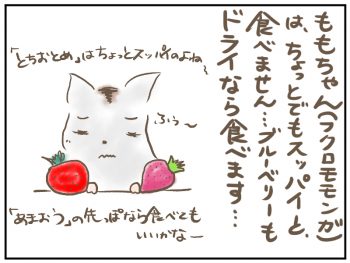 ももちゃん(フクロモモンガ)
は、ちょっとでもスッパイと、
食べません…ブルーベリーも
ドライなら食べます…
「とちおとめ」はちょっとスッパイのよね〜
ふぅ〜
「あまおう」の先っぽなら食べても
いいかな〜